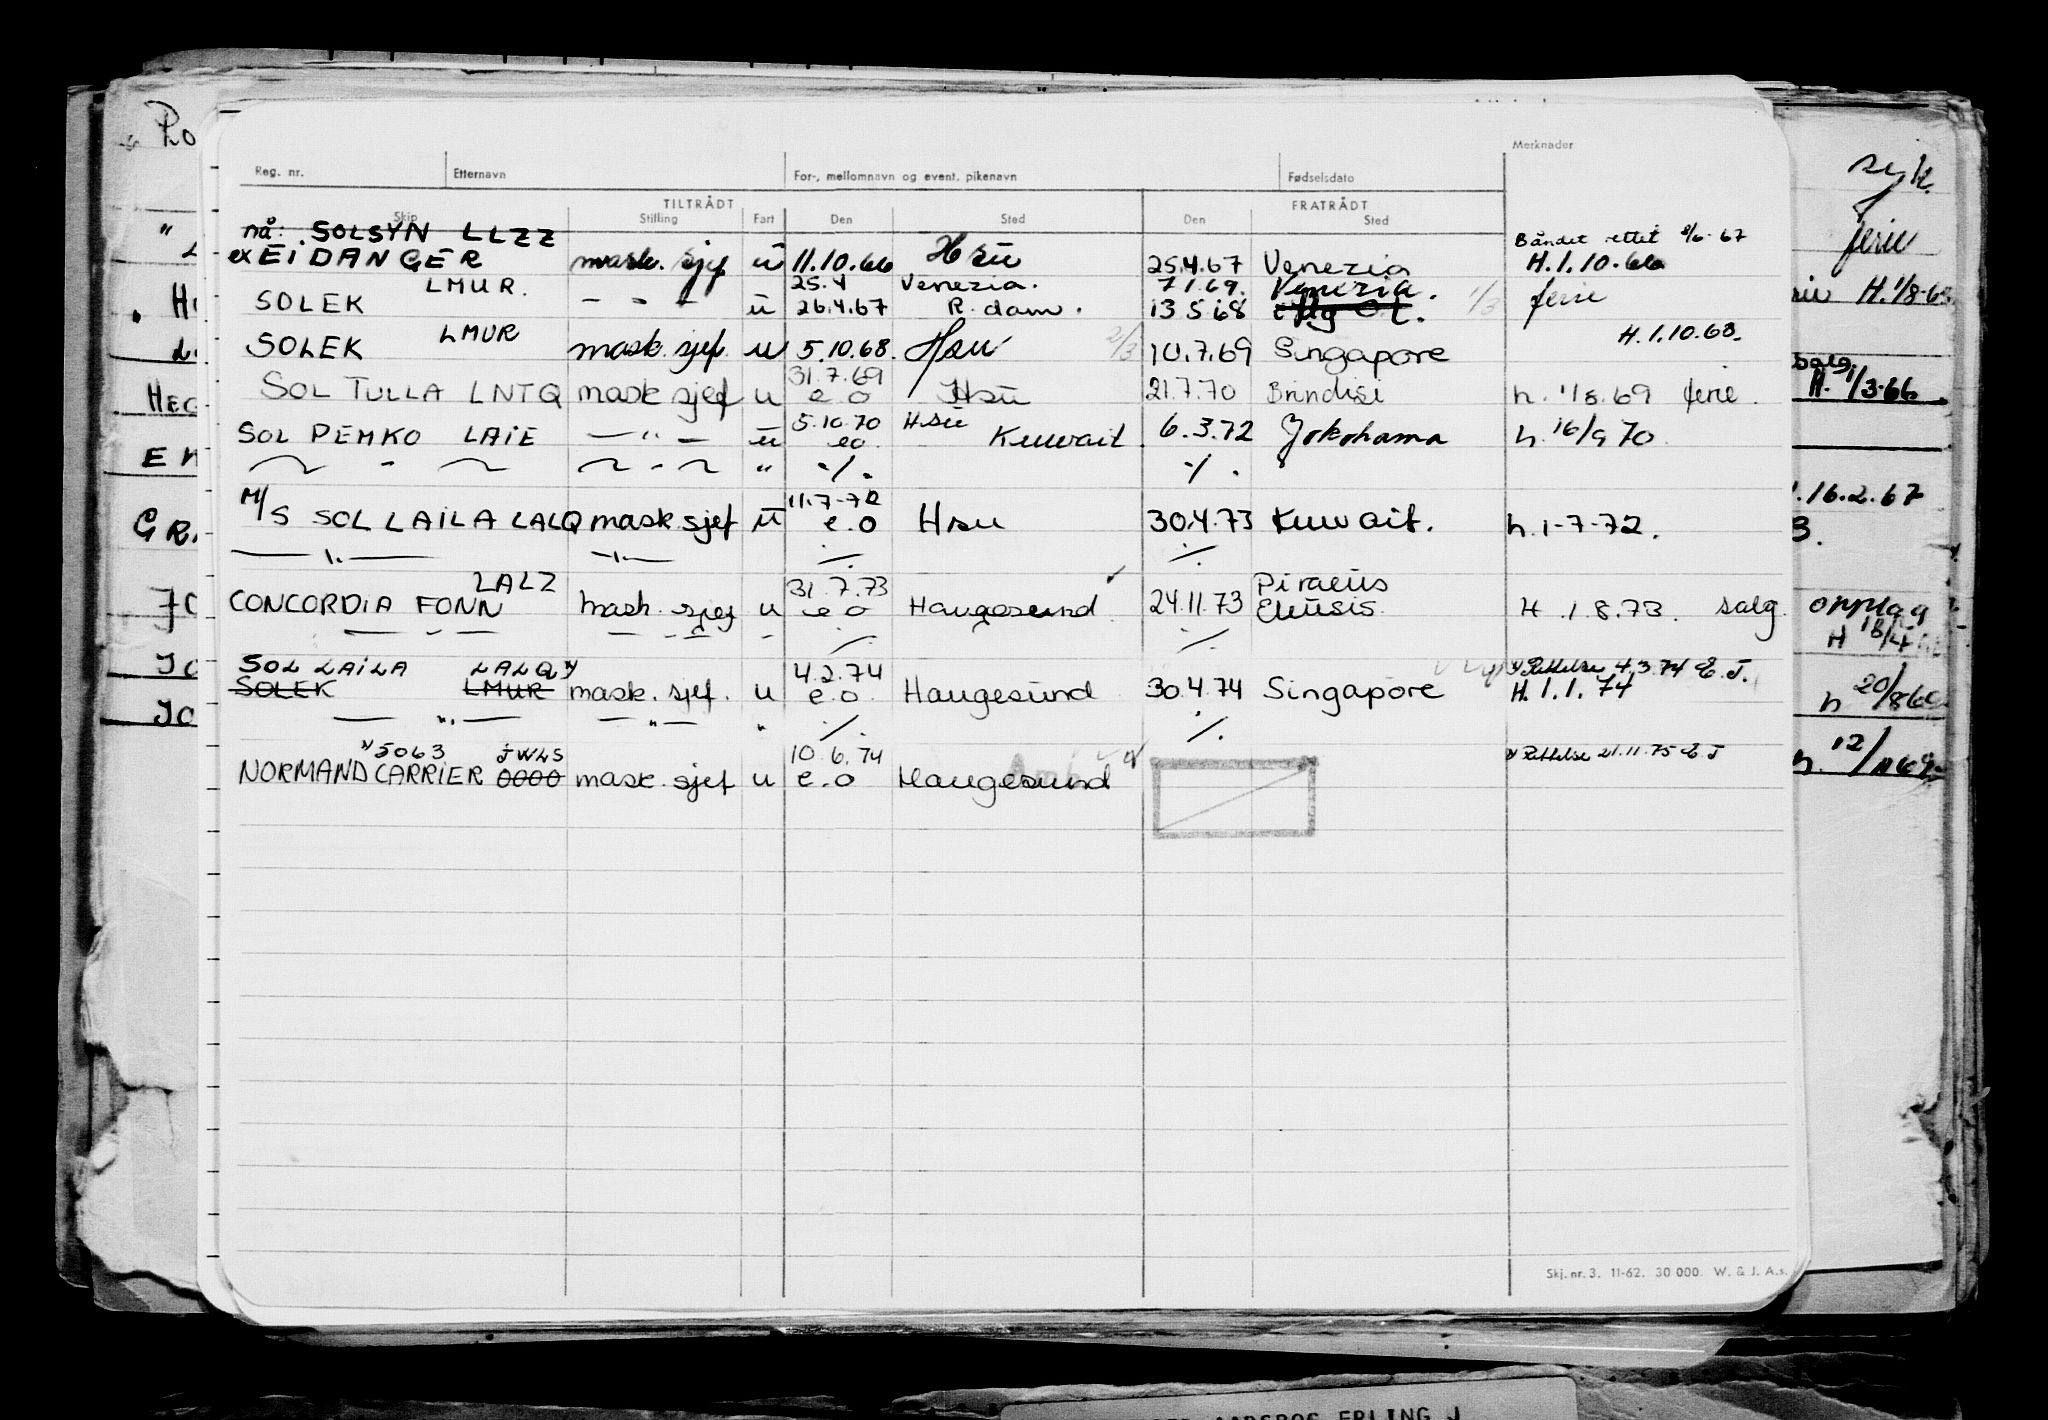 Merknader
Reg. nr. Etternavn For-, mellomnavn og event. pikenavn Fødselsdato
TILTRÅDT FRATRÅDT
Skip Stilling Fart Den Sted Den Sted
nå: SOLSYN LLZZ Båndet rettet 8/6-67
ex EIDANGER mask. sjef ü 11.10.66 Hsu 25.4.67 Venezia H.1.10.66
LMUR. 25.4 Venezia. 7.1.69. Venezia.
SOLEK — " — ü 26.4.67 R.dam. 13.5.68 1/3 ferie
SOLEK LMUR mask. sjef. u 5.10.68. Hsu 2/3 10.7.69 Singapore H.1.10.68.
31.7.69
SOL TULLA LNTQ mask sjef u e.o Hsü 21.7.70 Brindisi h. 1/8.69 ferie.
5.10.70 Hsü
SOL PEMKO LAIE — " — ü eo. Kuwait. 6.3.72 Yokohama h. 16/9 70.
~ - ~ ~ - ~ " -/. -/.
11.7-72
M/S SOL LAILA LALQ mask sjef ü e.o Hsu 30.4.73 Kuwait. h.1-7-72.
— " — — " — ./. ./.
LALZ 31.7.73 Piraeüs
CONCORDIA FONN mask. sjef u e o Haugesund. 24.11.73 Eleüsis. H .1.8.73. salg.
— " — — " — " ./. ./.
SOL LAILA LALQ x) 4.2.74 x) Rettelse 4.3.74 E.J.
SOLEK LMUR mask. sjef. u e.o. Haugesünd 30.4.74 Singapore H.1.1.74
— " — — " — " ./. ./.
x) 5063 JWLS 10.6.74 x) Rettelse 21.11.75 E J
NORMAND CARRIER 0000 mask. sjef u e.o Haugesund
Skj. nr. 3. 11-62. 30 000. W. & J. A.s.
syk.
ferie
H.1/8-63
salg.
H. 1/3-66.
HEG
16.2.67
GR.
opplag
H 18/4
h 20/8 60
h. 12/
ERLING J